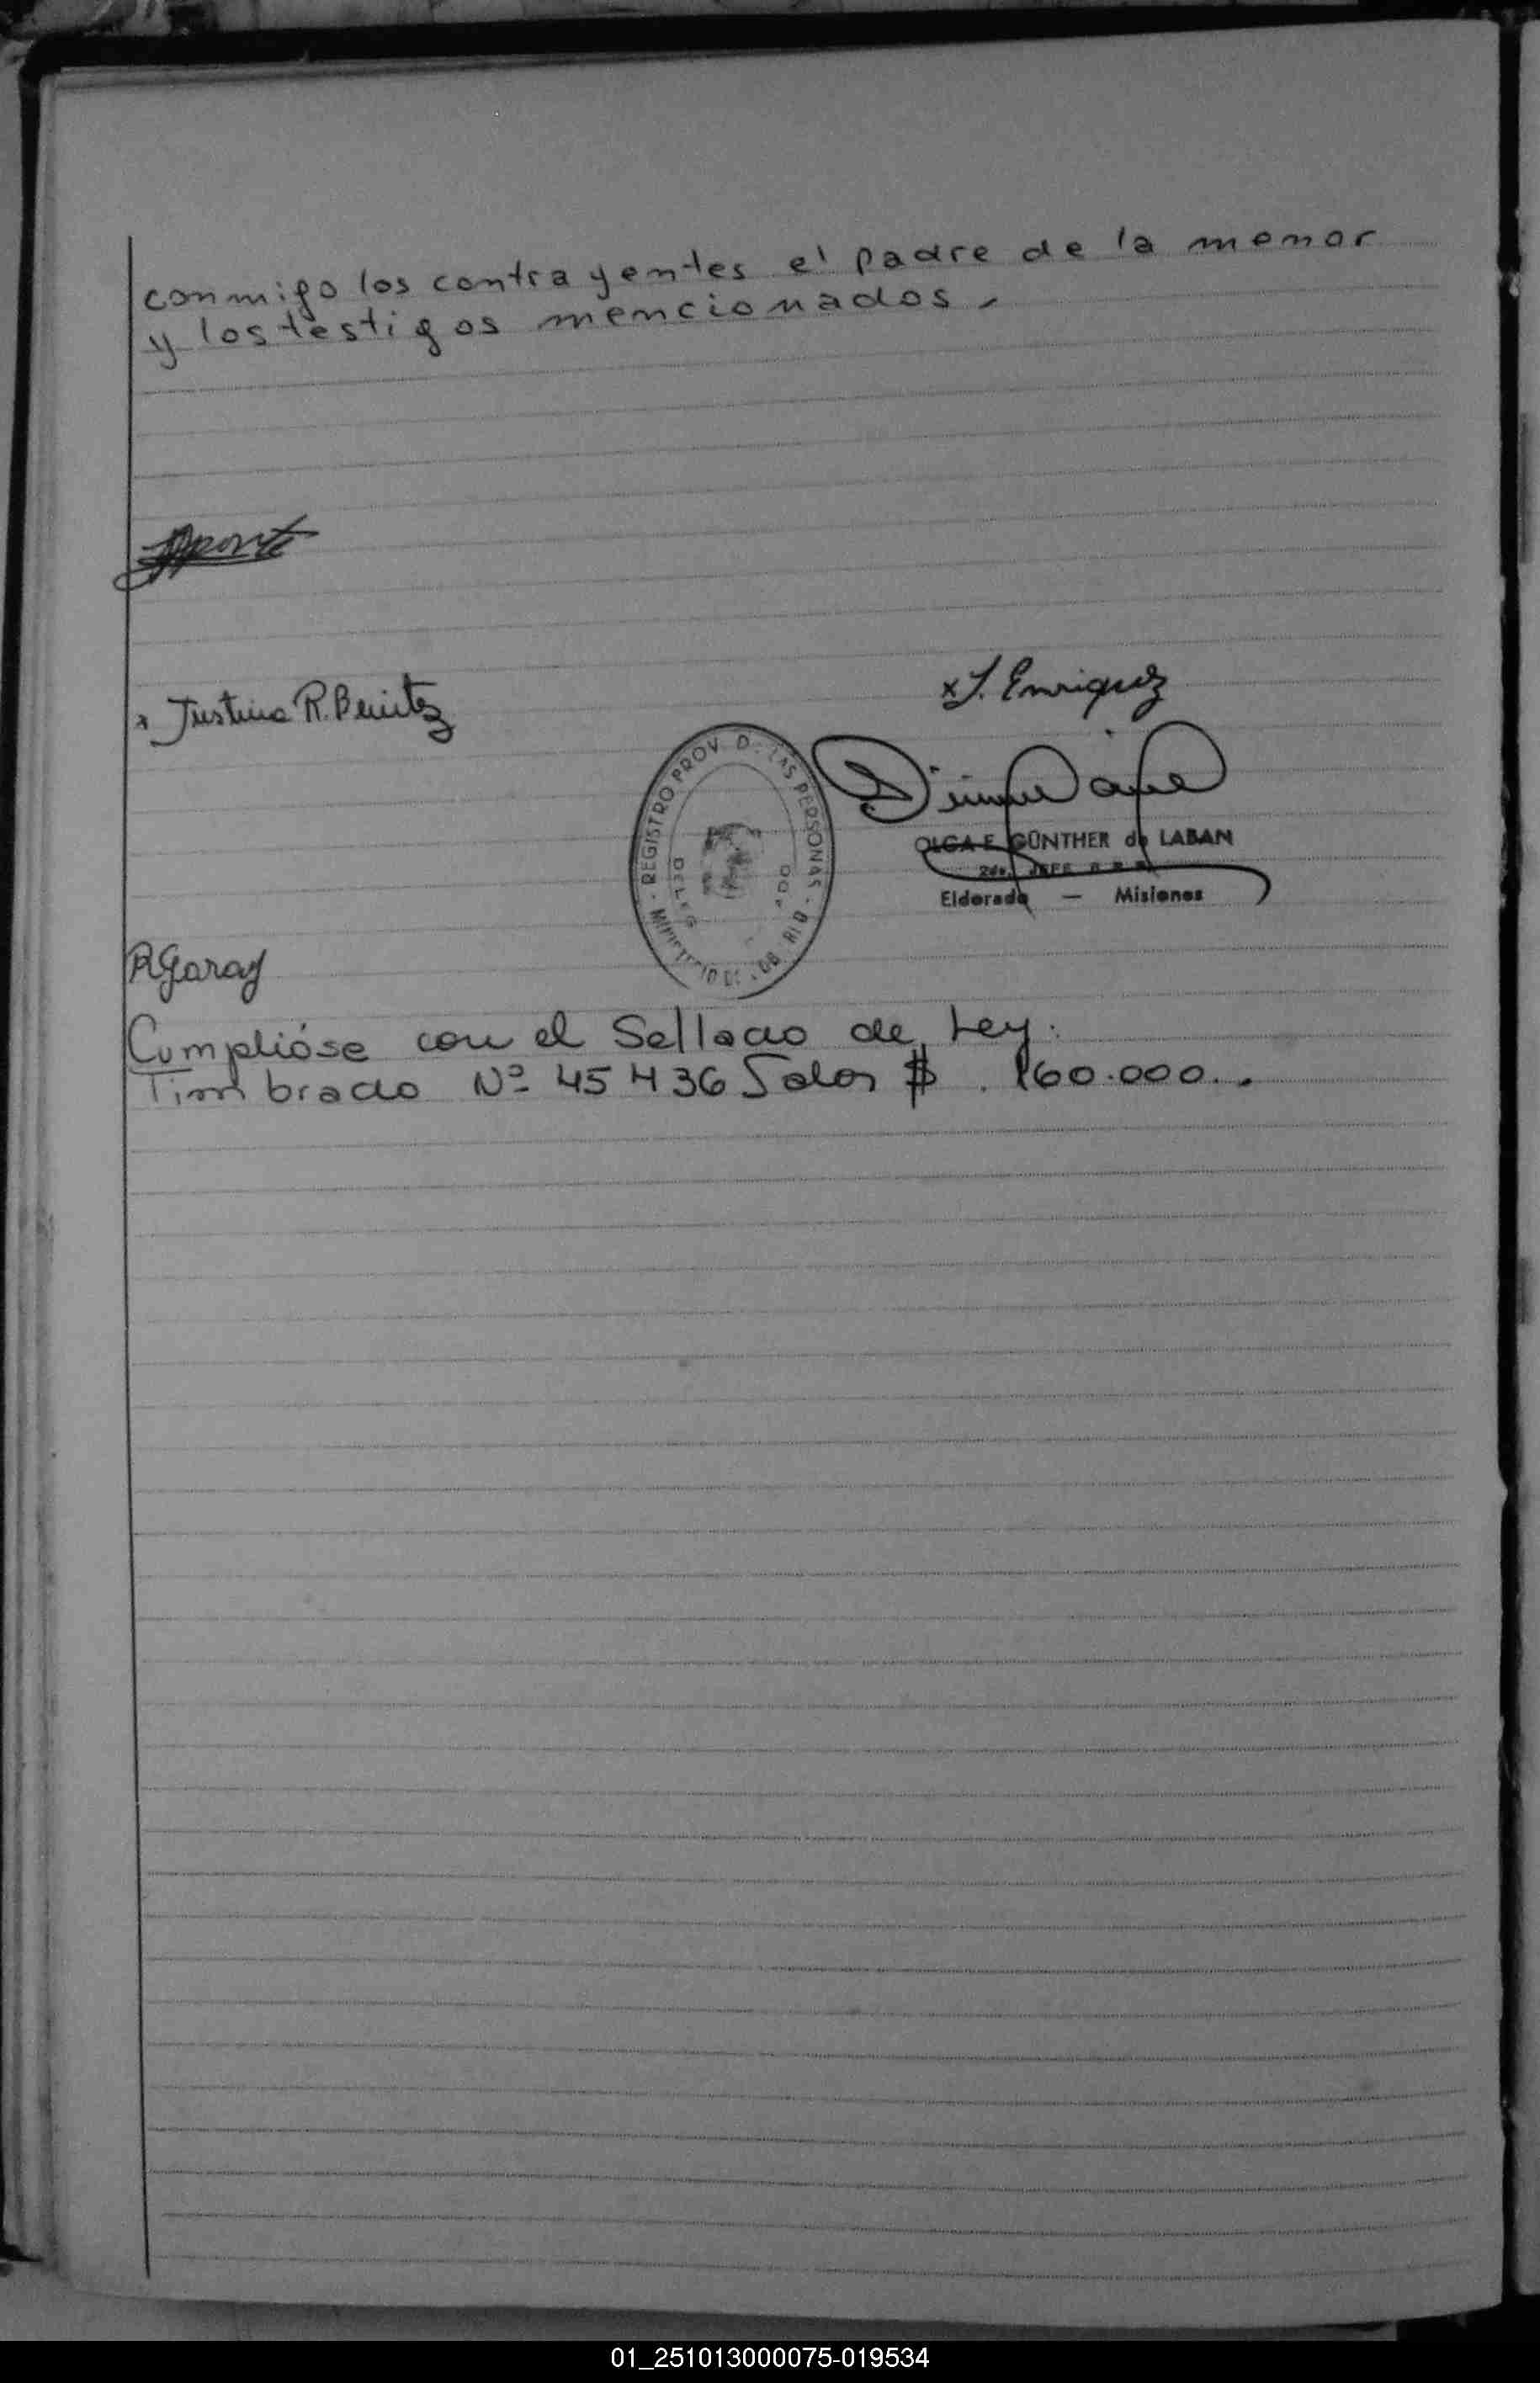 conmigo los contrayentes el padre de la menor
y los testigos mencionados.
Justina R. Benitez
x J. Enriquez
REGISTRO PROV. DE LAS PERSONAS
OLGA E. GÜNTHER de LABAN
2do. JEFE R. P. P.
Eldorado — Misiones
RGaray
Cumplióse con el Sellado de Ley:
Timbrado Nº 45436 Valor $ . 160.000..
01_251013000075-019534